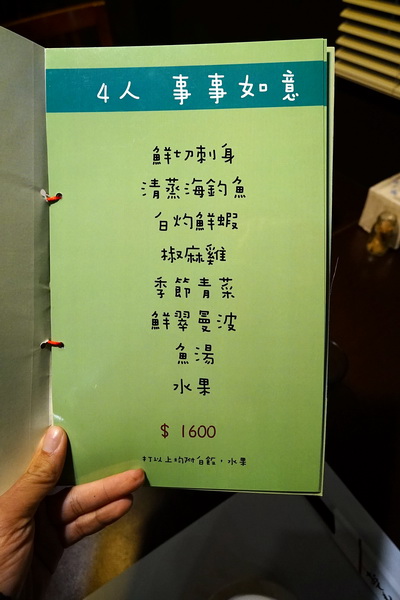 4人 事事如意
鮮切刺身
清蒸海釣魚
白灼鮮蝦
椒麻雞
季節青菜
鮮翠曼波
魚湯
水果
$ 1600
以上均附白飯，水果